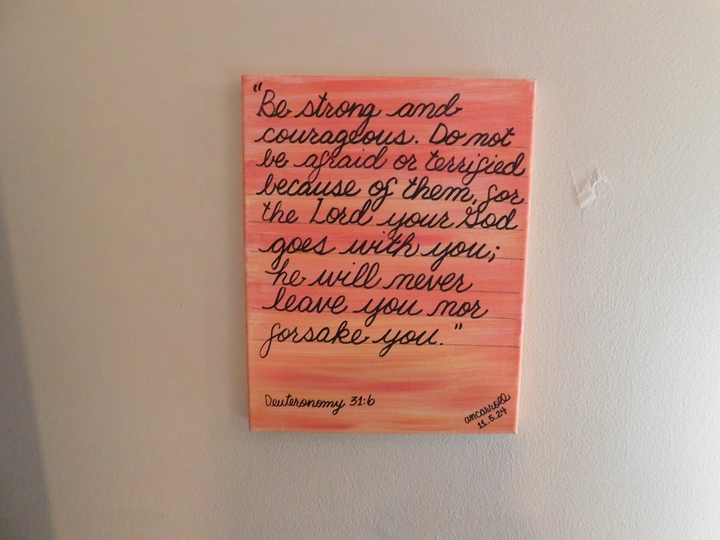 "Be strong and
courageous. Do not
be afraid or terrified
because of them, for
the Lord your God
goes with you;
he will never
leave you nor
forsake you."
Deuteronomy 31:6
ancarroll
11.5.24